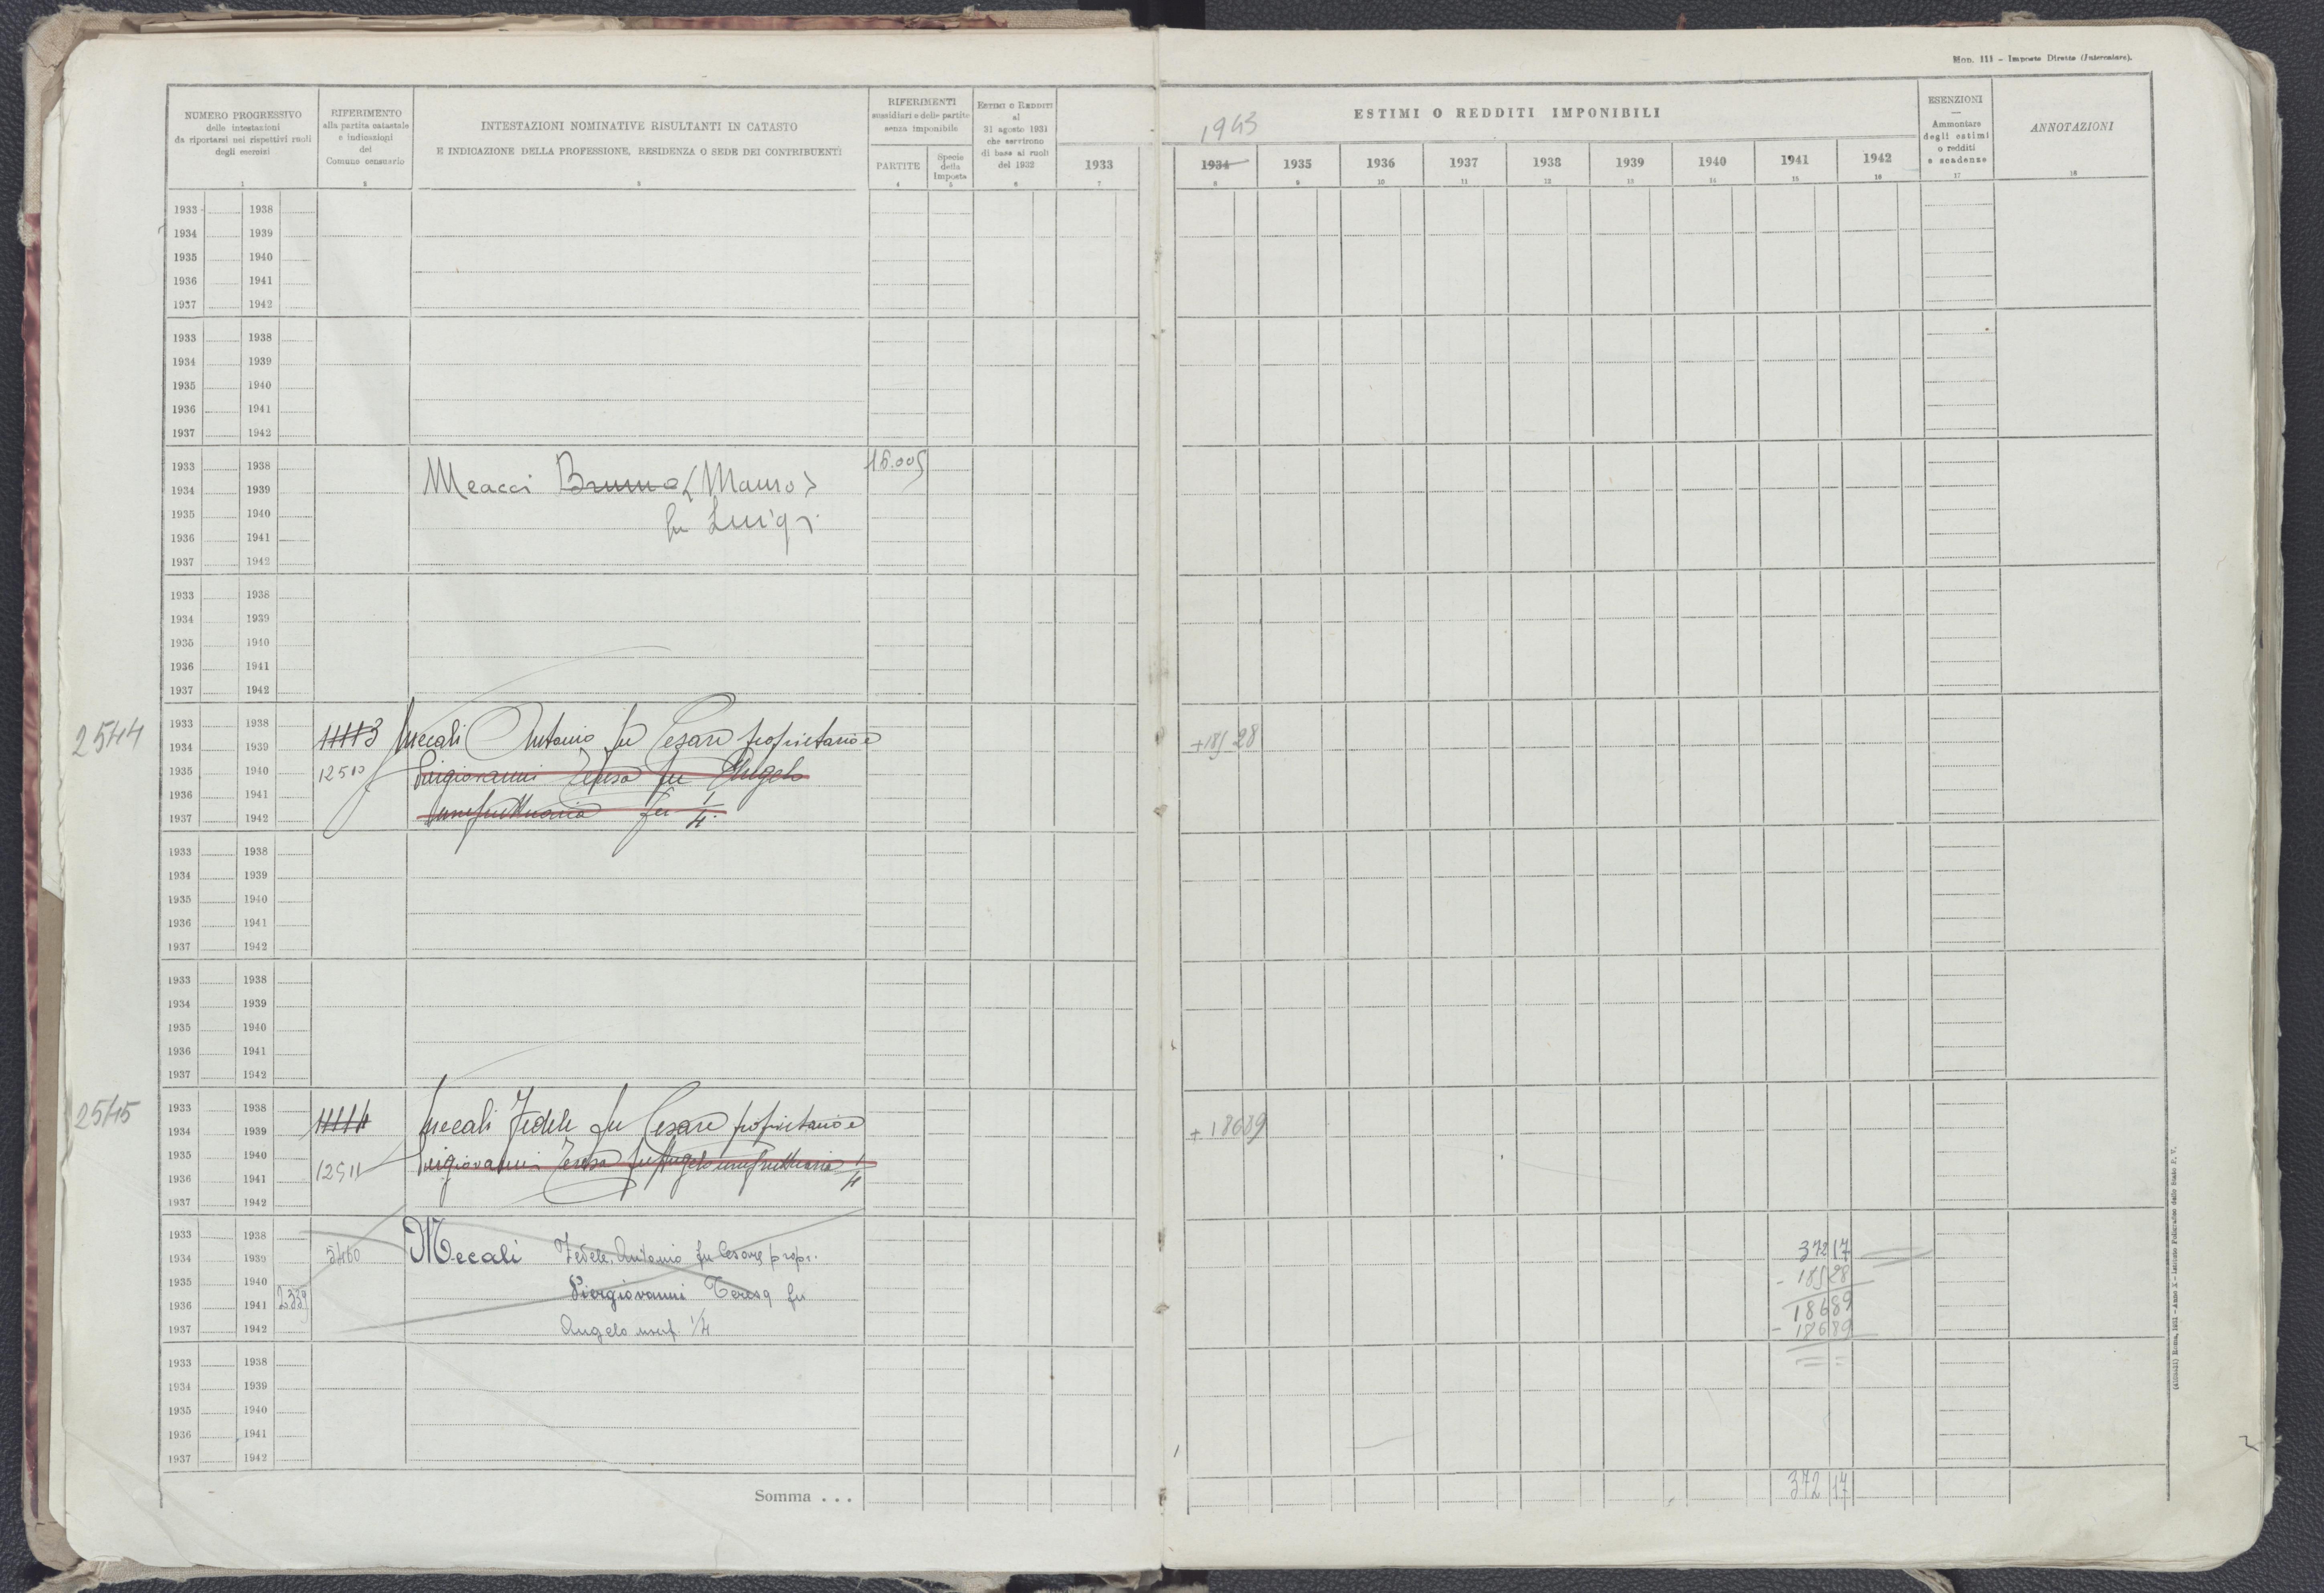 Mod. 111 - Imposte Dirette (Intercalare).
NUMERO PROGRESSIVO
delle intestazioni
da riportarsi nei rispettivi ruoli
degli esercizi
1
RIFERIMENTO
alla partita catastale
e indicazioni
del
Comune censuario
2
INTESTAZIONI NOMINATIVE RISULTANTI IN CATASTO
E INDICAZIONE DELLA PROFESSIONE, RESIDENZA O SEDE DEI CONTRIBUENTI
3
RIFERIMENTI
sussidiari e delle partite
senza imponibile
PARTITE
4
Specie
della
Imposta
5
ESTIMI O REDDITI
al
31 agosto 1931
che servirono
di base ai ruoli
del 1932
6
1933
7
ESTIMI O REDDITI IMPONIBILI
1943
1934 1935 1936 1937 1938 1939 1940 1941 1942
8 9 10 11 12 13 14 15 16
ESENZIONI
Ammontare
degli estimi
o redditi
e scadenze
17
ANNOTAZIONI
18
1933 1938
1934 1939
1935 1940
1936 1941
1937 1942
1933 1938
1934 1939
1935 1940
1936 1941
1937 1942
1933 1938 16.005
1934 1939 Meacci Bruno (Mauro)
1935 1940 fu Luigi
1936 1941
1937 1942
1933 1938
1934 1939
1935 1940
1936 1941
1937 1942
2544
1933 1938
1934 1939 11113 Mecali Antonio fu Cesare proprietario e +185 28
1935 1940 12510 Piergiovanni Teresa fu Angelo
1936 1941
1937 1942 usufruttuaria per 1/4.
1933 1938
1934 1939
1935 1940
1936 1941
1937 1942
1933 1938
1934 1939
1935 1940
1936 1941
1937 1942
2545
1933 1938
1934 1939 11114 Mecali Fedele fu Cesare proprietario e + 186 89
1935 1940
1936 1941 12511 Piergiovanni Teresa fu Angelo usufruttuaria 1/4
1937 1942
1933 1938
1934 1939 5460 Mecali Fedele, Antonio fu Cesare, propr. 372 17
1935 1940 - 185 28
1936 1941 2339 Piergiovanni Teresa fu 186 89
1937 1942 Angelo usuf. 1/4 - 186 89
1933 1938
1934 1939
1935 1940
1936 1941
1937 1942
Somma . . . 372 17